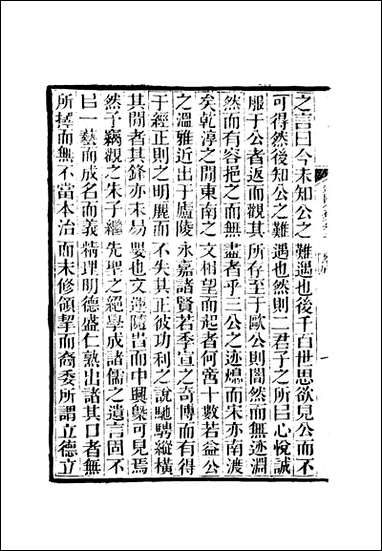 之言曰今未知公之難遇也後千百世思欲見公而不
可得然後知公之難遇也然則二君子之所㠯心悅誠
服于公者返而觀其所存至于歐公則闇然而無迹淵
然而有容挹之而無盡者乎三公之迹熄而宋亦南渡
矣乾淳之閒東南之文相望而起者何啻十數若益公
之溫雅近出于廬陵永嘉諸賢若季宣之奇博而有得
于經正則之明麗而不失其正彼功利之說馳騁縱橫
其閒者其鋒亦未易嬰也文運隨峕而中興槩可見焉
然予竊觀之朱子繼先聖之絕學成諸儒之遺言固不
㠯一藝而成名而義精理明德盛仁熟出諸其口者無
所擇而無不當本治而末修領挈而裔委所謂立德立